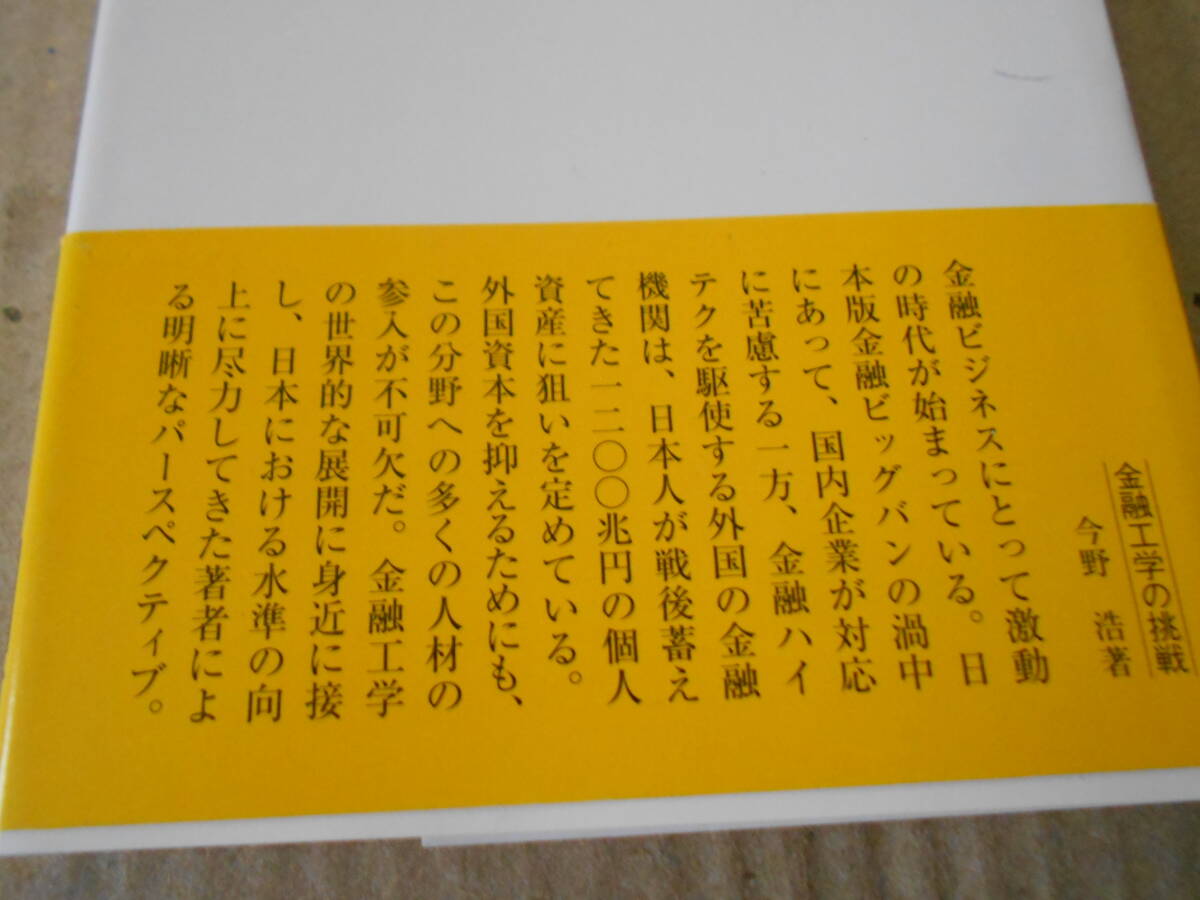 金融工学の挑戦
今野 浩著
金融ビジネスにとって激動
の時代が始まっている。日
本版金融ビッグバンの渦中
にあって、国内企業が対応
に苦慮する一方、金融ハイ
テクを駆使する外国の金融
機関は、日本人が戦後蓄え
てきた一二〇〇兆円の個人
資産に狙いを定めている。
外国資本を抑えるためにも、
この分野への多くの人材の
参入が不可欠だ。金融工学
の世界的な展開に身近に接
し、日本における水準の向
上に尽力してきた著者によ
る明晰なパースペクティブ。